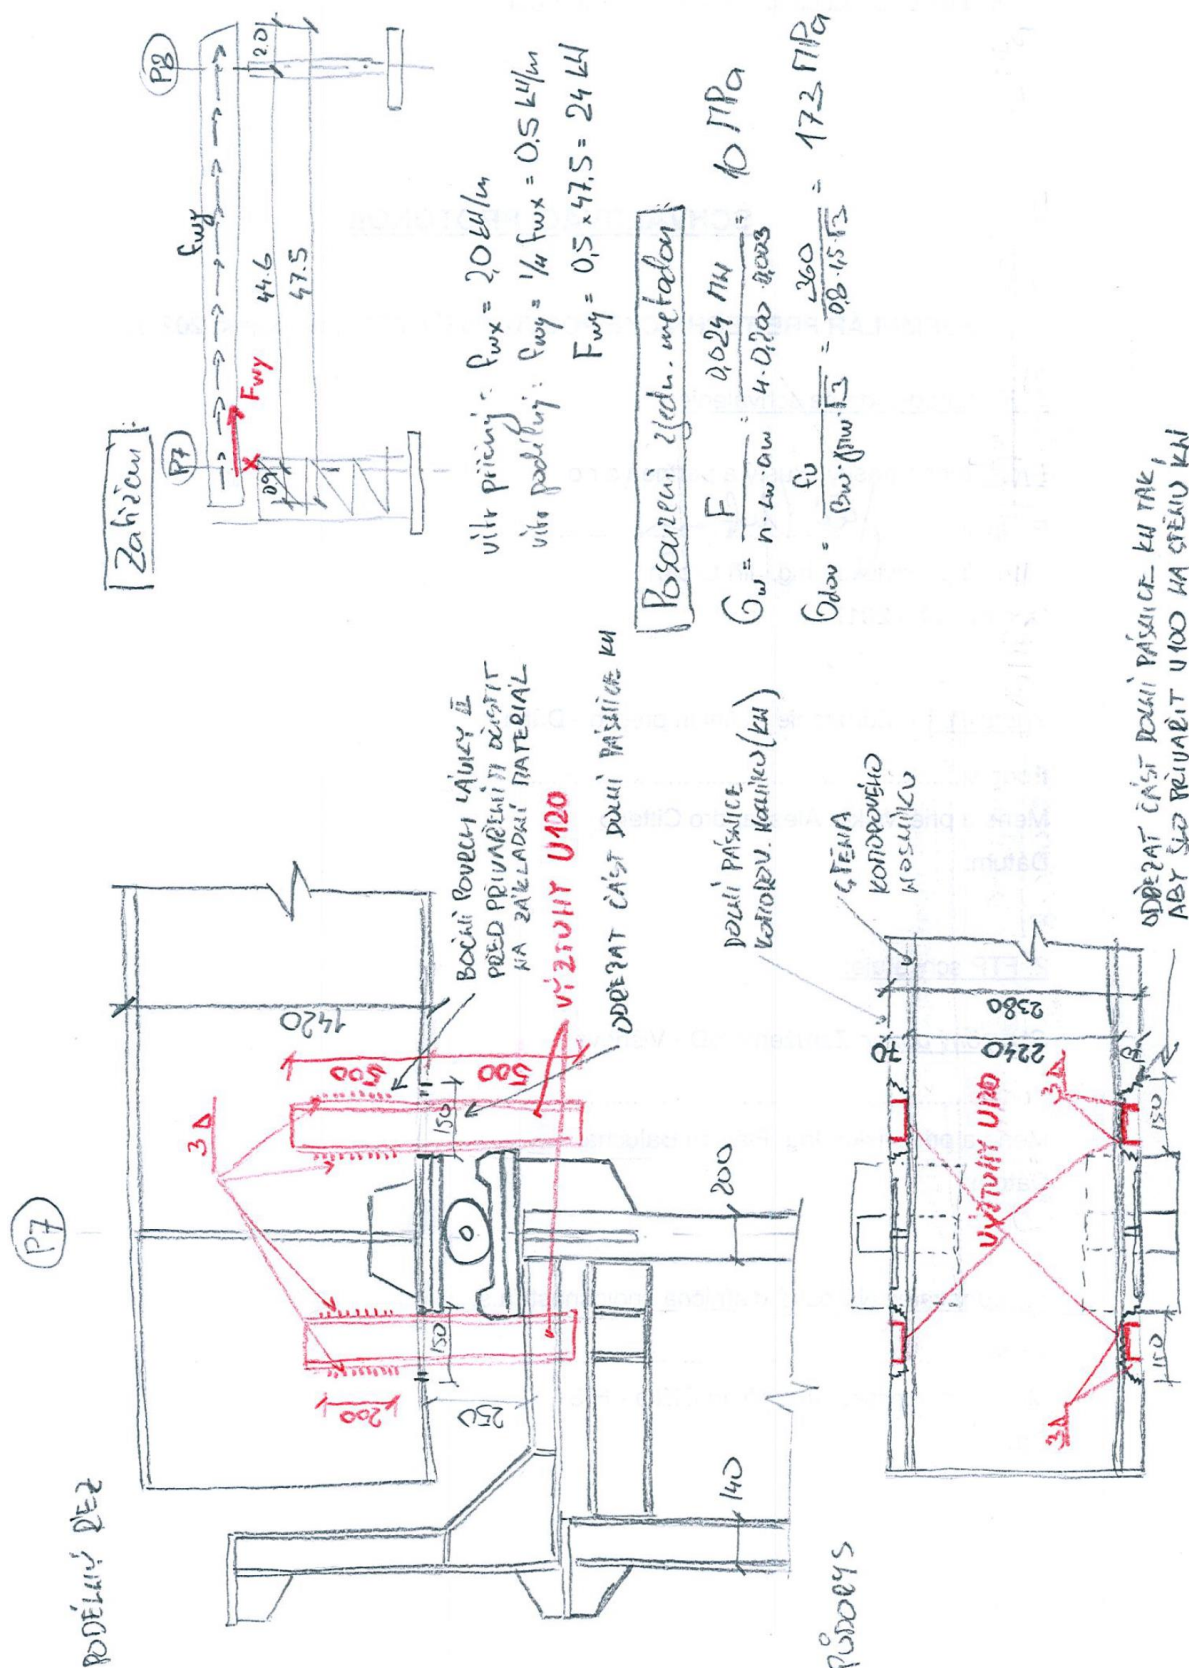 PODÉLNÝ ŘEZ
P7
3
1420
500
500
200
150
150
250
200
140
BOČNÍ POVRCH LÁVKY
PŘED PŘIVAŘENÍM OČISTIT
NA ZÁKLADNÍ MATERIÁL
VÝZTUHY U120
ODŘEZAT ČÁST DOLNÍ PÁSNICE KN
PŮDORYS
DOLNÍ PÁSNICE
KOMOROV. NOSNÍKU (KN)
STĚNA
KOMOROVÉHO
NOSNÍKU
70
2240
2380
VÝZTUHY U120
3
3
150
150
ODŘEZAT ČÁST DOLNÍ PÁSNICE KN TAK,
ABY ŠLO PŘIVAŘIT U100 NA STĚNU KN
Zatížení
P7
P8
fwy
Fwy
44.6
47.5
2.0
vítr příčný: fwx = 2,0 kN/m
vítr podélný: fwy = 1/4 fwx = 0.5 kN/m
Fwy = 0,5 x 47.5 = 24 kN
Posouzení zjedn. metodou
σw = F / n·Lw·aw = 0,024 MN / 4·0,200·0,003 = 10 MPa
σdov = fu / βw·γMw·√3 = 360 / 0,8·1,5·√3 = 173 MPa
Dátum: